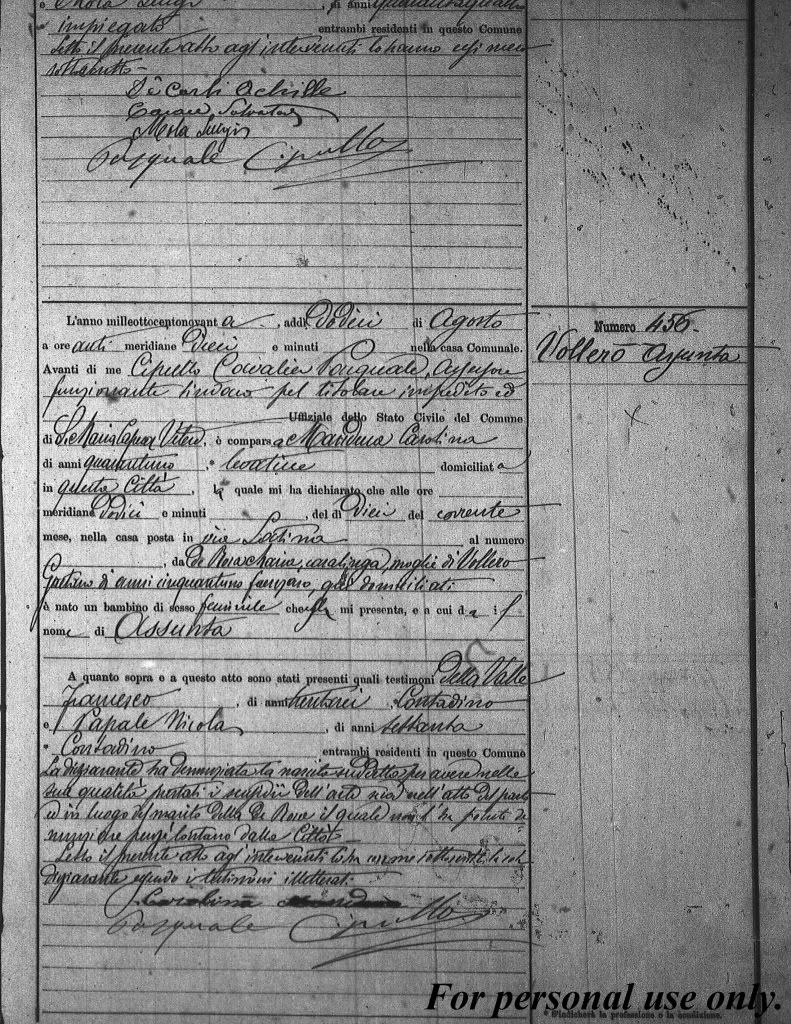 e Mola Luigi, di anni quarantaquattro
impiegato entrambi residenti in questo Comune
Letto il presente atto agl'intervenuti lo hanno essi meco
sottoscritto -
De Carli Achille
Salvatore
Mola Luigi
Pasquale Cipullo
L'anno milleottocentonovanta, addì Dodici di Agosto
a ore anti meridiane Dieci e minuti nella casa Comunale.
Avanti di me Cipullo Cavalier Pasquale, Assessore
funzionante Sindaco pel titolare impedito ed
Uffiziale dello Stato Civile del Comune
di S. Maria Capua Vetere, è comparsa Carolina
di anni quarantuno, levatrice domiciliata
in questa Città, la quale mi ha dichiarato che alle ore
meridiane Dodici e minuti, del dì Dieci del corrente
mese, nella casa posta in via Latina al numero
, da De Rosa Maria, casalinga, moglie di Vollero
Gaetano di anni cinquantuno, domiciliati
è nato un bambino di sesso feminile che mi presenta, e a cui dà il
nome di Assunta
A quanto sopra e a questo atto sono stati presenti quali testimoni Della Valle
Francesco, di anni trentasei Contadino
e Papale Nicola, di anni settanta
Contadino entrambi residenti in questo Comune
La dichiarante ha denunziata la nascita suddetta per avere nella
sua qualità prestati i sussidii dell'arte sua nell'atto del parto
ed in luogo del marito della De Rosa il quale non l'ha potuto de-
nunziare perché lontano dalla Città
Letto il presente atto agl'intervenuti lo ha meco sottoscritto la sola
dichiarante essendo i testimoni illetterati
Carolina
Pasquale Cipullo
Numero 456.
Vollero Assunta
* S'indicherà la professione o la condizione.
For personal use only.